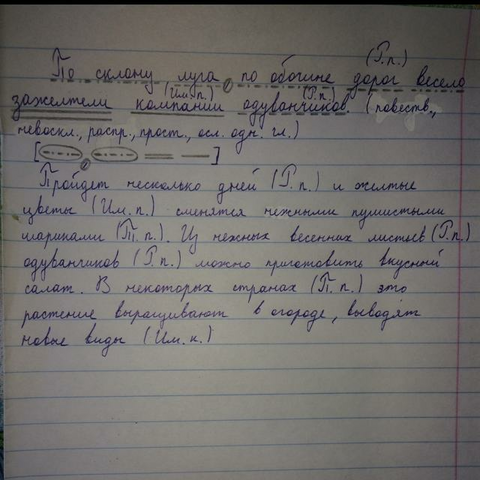 (Р.п.)
По склону луга, по обочине дорог весело
(Им.п.) (Р.п.)
зажелтели компании одуванчиков. (повеств.,
невоскл., распр., прост., осл. одн. гл.)
[ , ]
Пройдет несколько дней (Р.п.) и желтые
цветы (Им.п.) сменятся нежными пушистыми
шариками (Т.п.). Из нежных весенних листьев (Р.п.)
одуванчиков (Р.п.) можно приготовить вкусный
салат. В некоторых странах (П.п.) это
растение выращивают в огороде, выводят
новые виды (Им.п.)